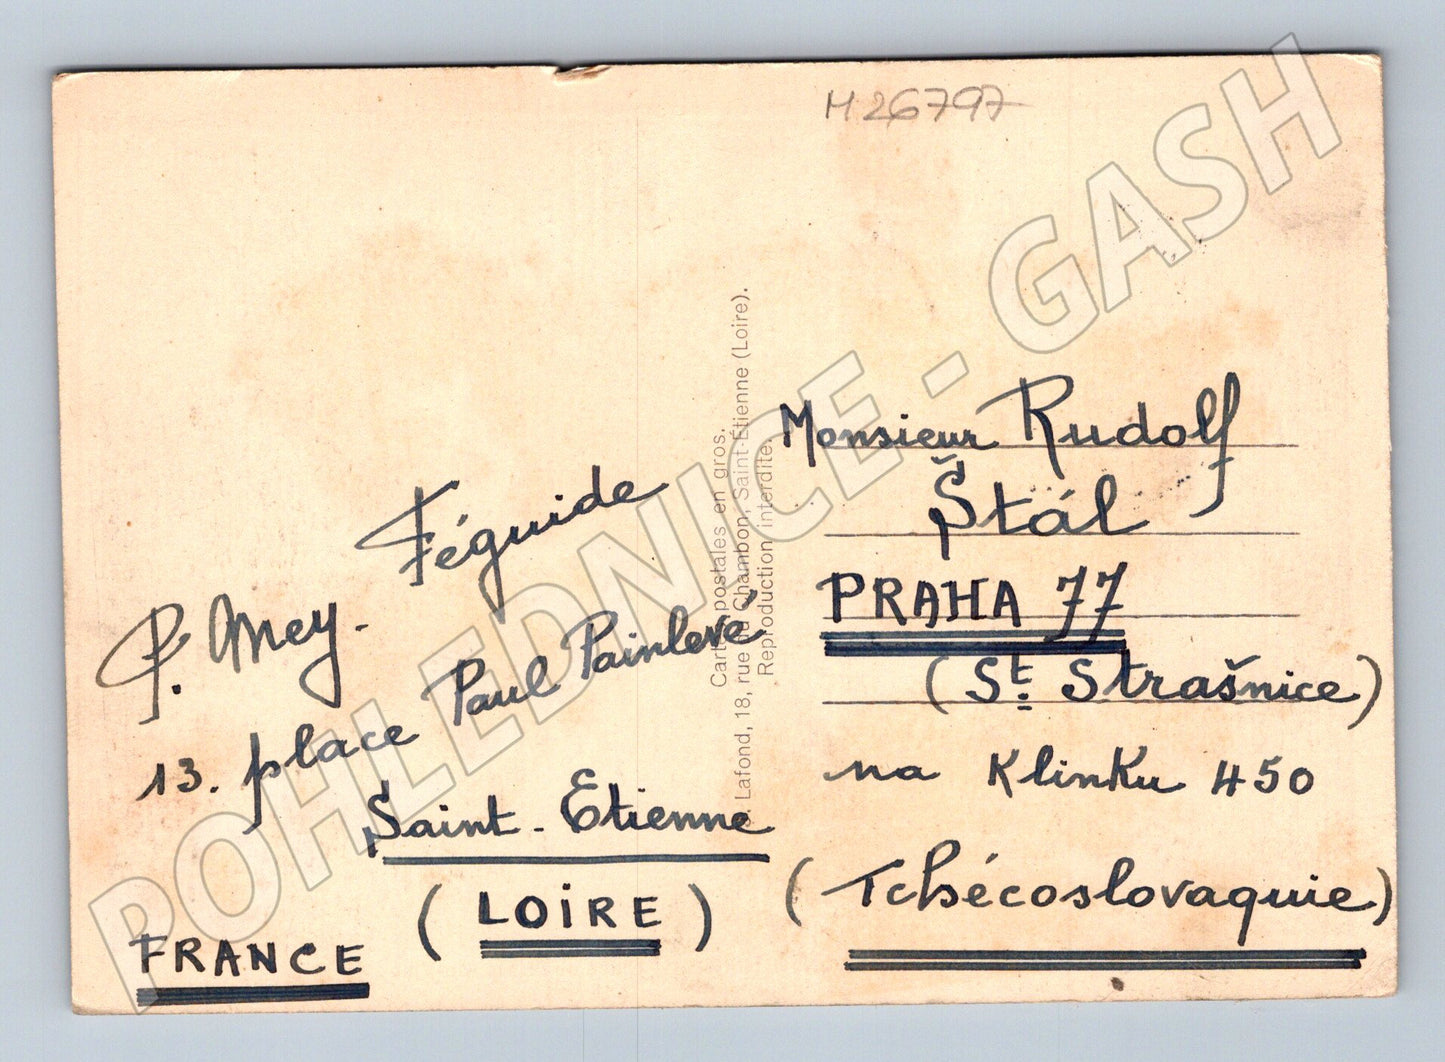 H 26797
P. Mey. Féguide
13. place Paul Painlevé
Saint-Etienne
( LOIRE )
FRANCE
Lafond, 18, rue du Chambon, Saint-Étienne (Loire).
Cartes postales en gros.
Reproduction interdite.
Monsieur Rudolf
Štál
PRAHA 77
(St. Strašnice)
na Klinku 450
(Tchécoslovaquie)
POHLEDNICE - GASH